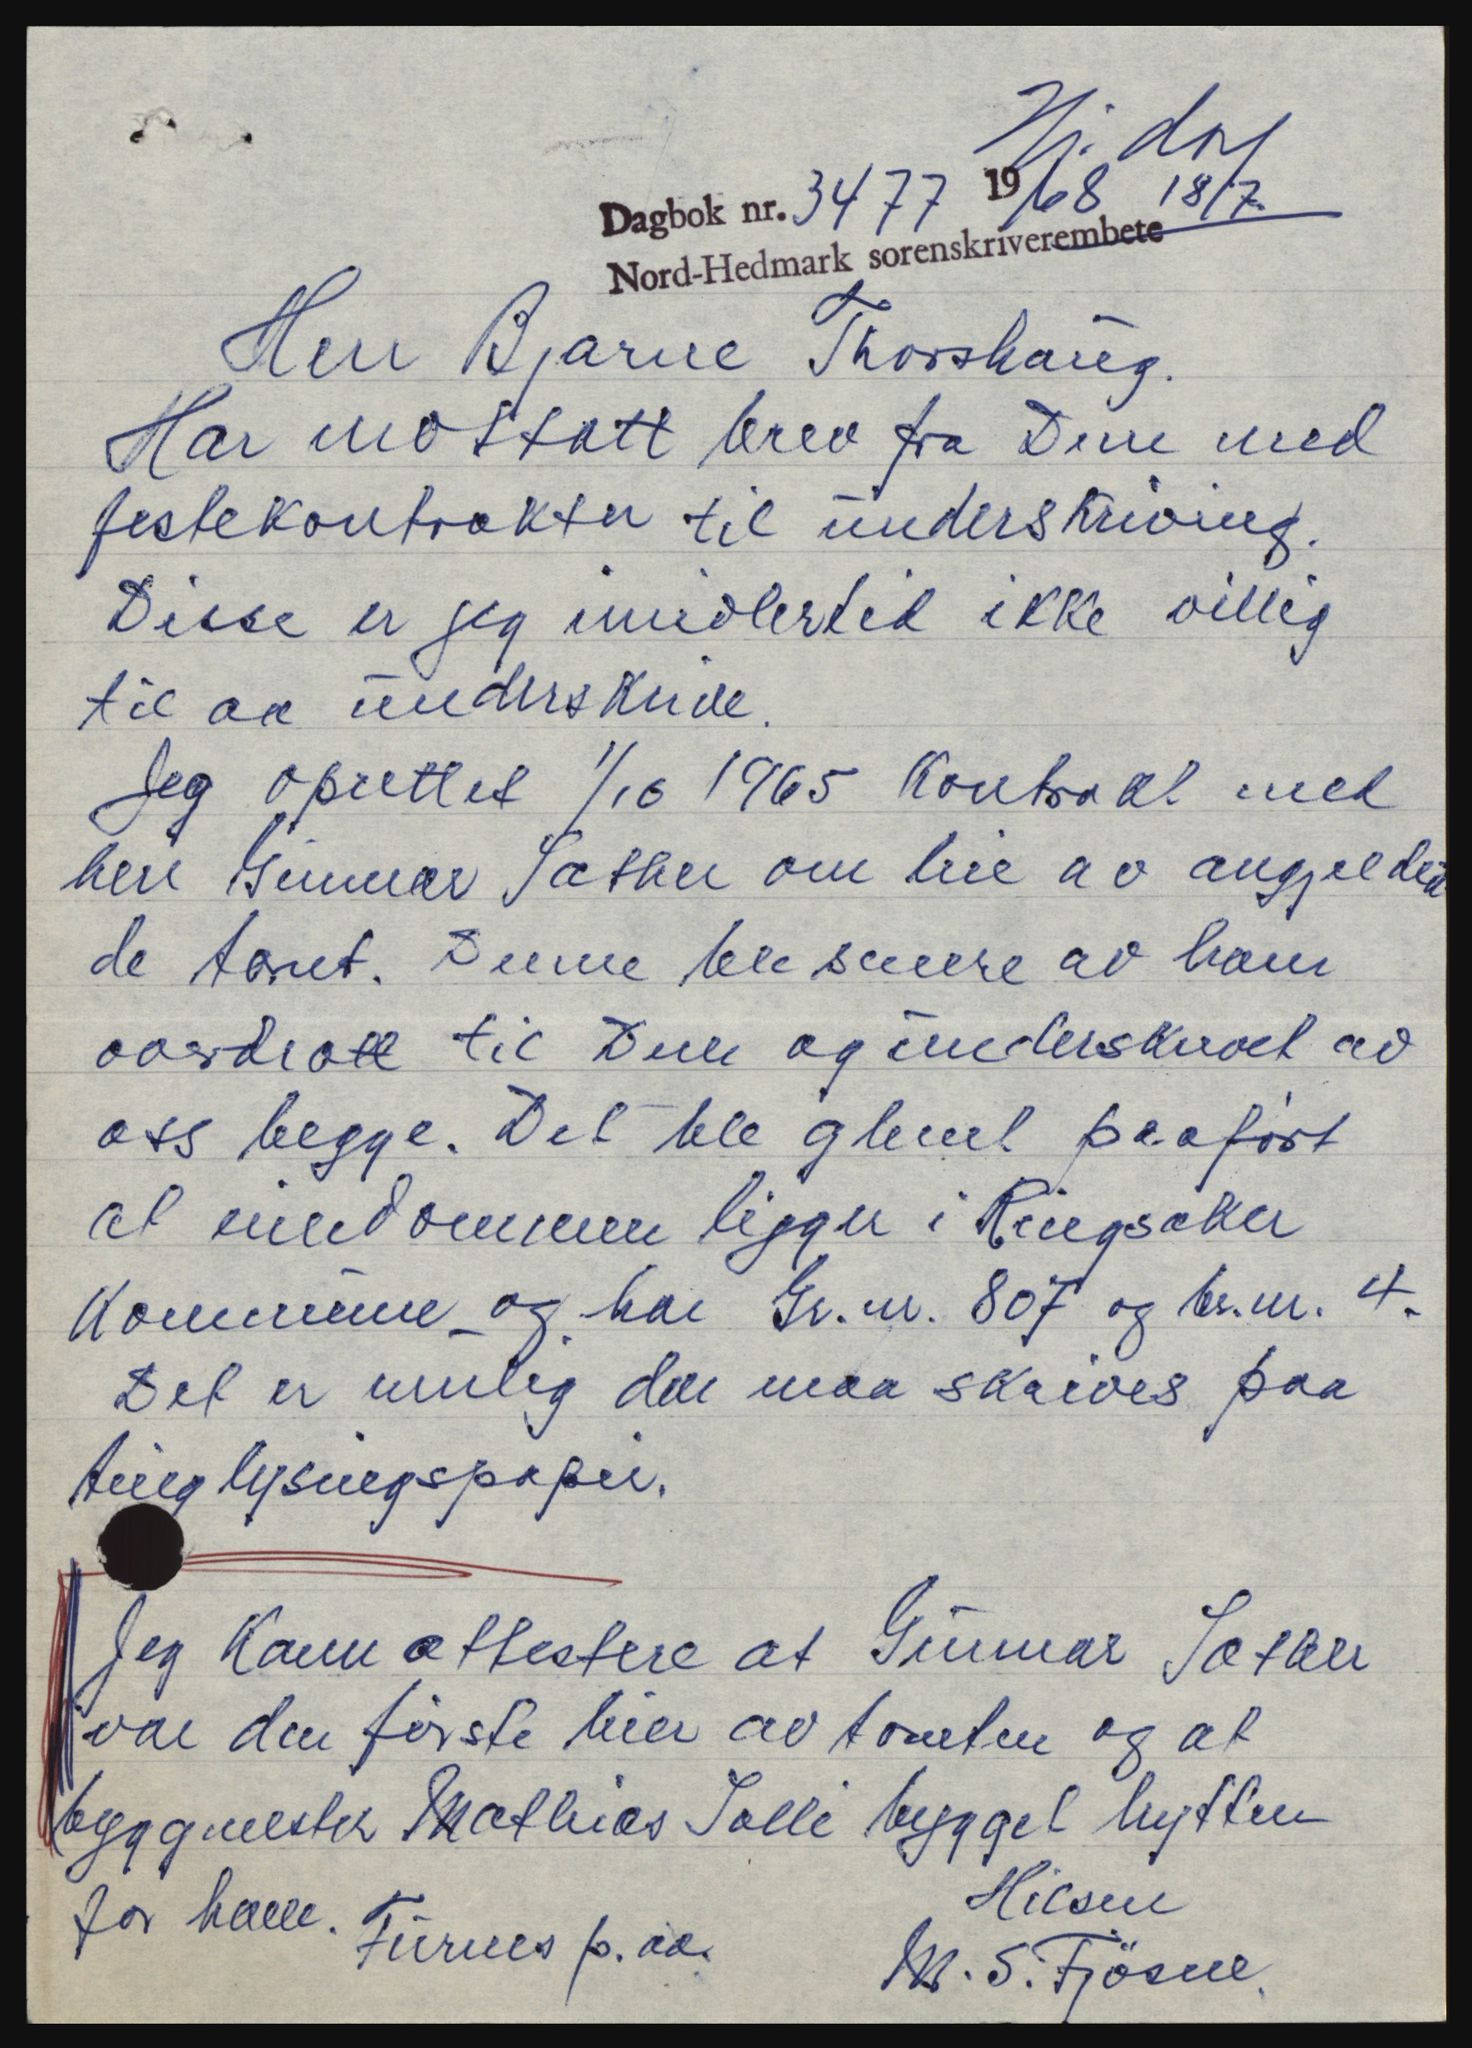 Dagbok nr. 3477 1968 18/7.
Nord-Hedmark sorenskriverembete
Herr Bjarne Thorshaug.
Har mottatt brev fra Dem med
festekontrakter til underskriving.
Disse er jeg imidlertid ikke villig
til aa underskrive.
Jeg oprettet 1/10 1965 Kontrakt med
herr Gunnar Sæther om leie av angjelden
de tomt. Denne ble senere av ham
overdratt til Dem og underskrevet av
oss begge. Det ble glemt paaført
at eiendommen ligger i Ringsaker
Kommune og har Gr.nr. 807 og br.nr. 4.
Det er mulig den maa skrives paa
tinglysingspapir.
Jeg Kann attestere at Gunnar Sæther
var den første leier av tomten og at
byggmester Mathias Solli bygget hytten
for ham. Furnes p.aa.
Hilsen
M. S. Fjøsne.